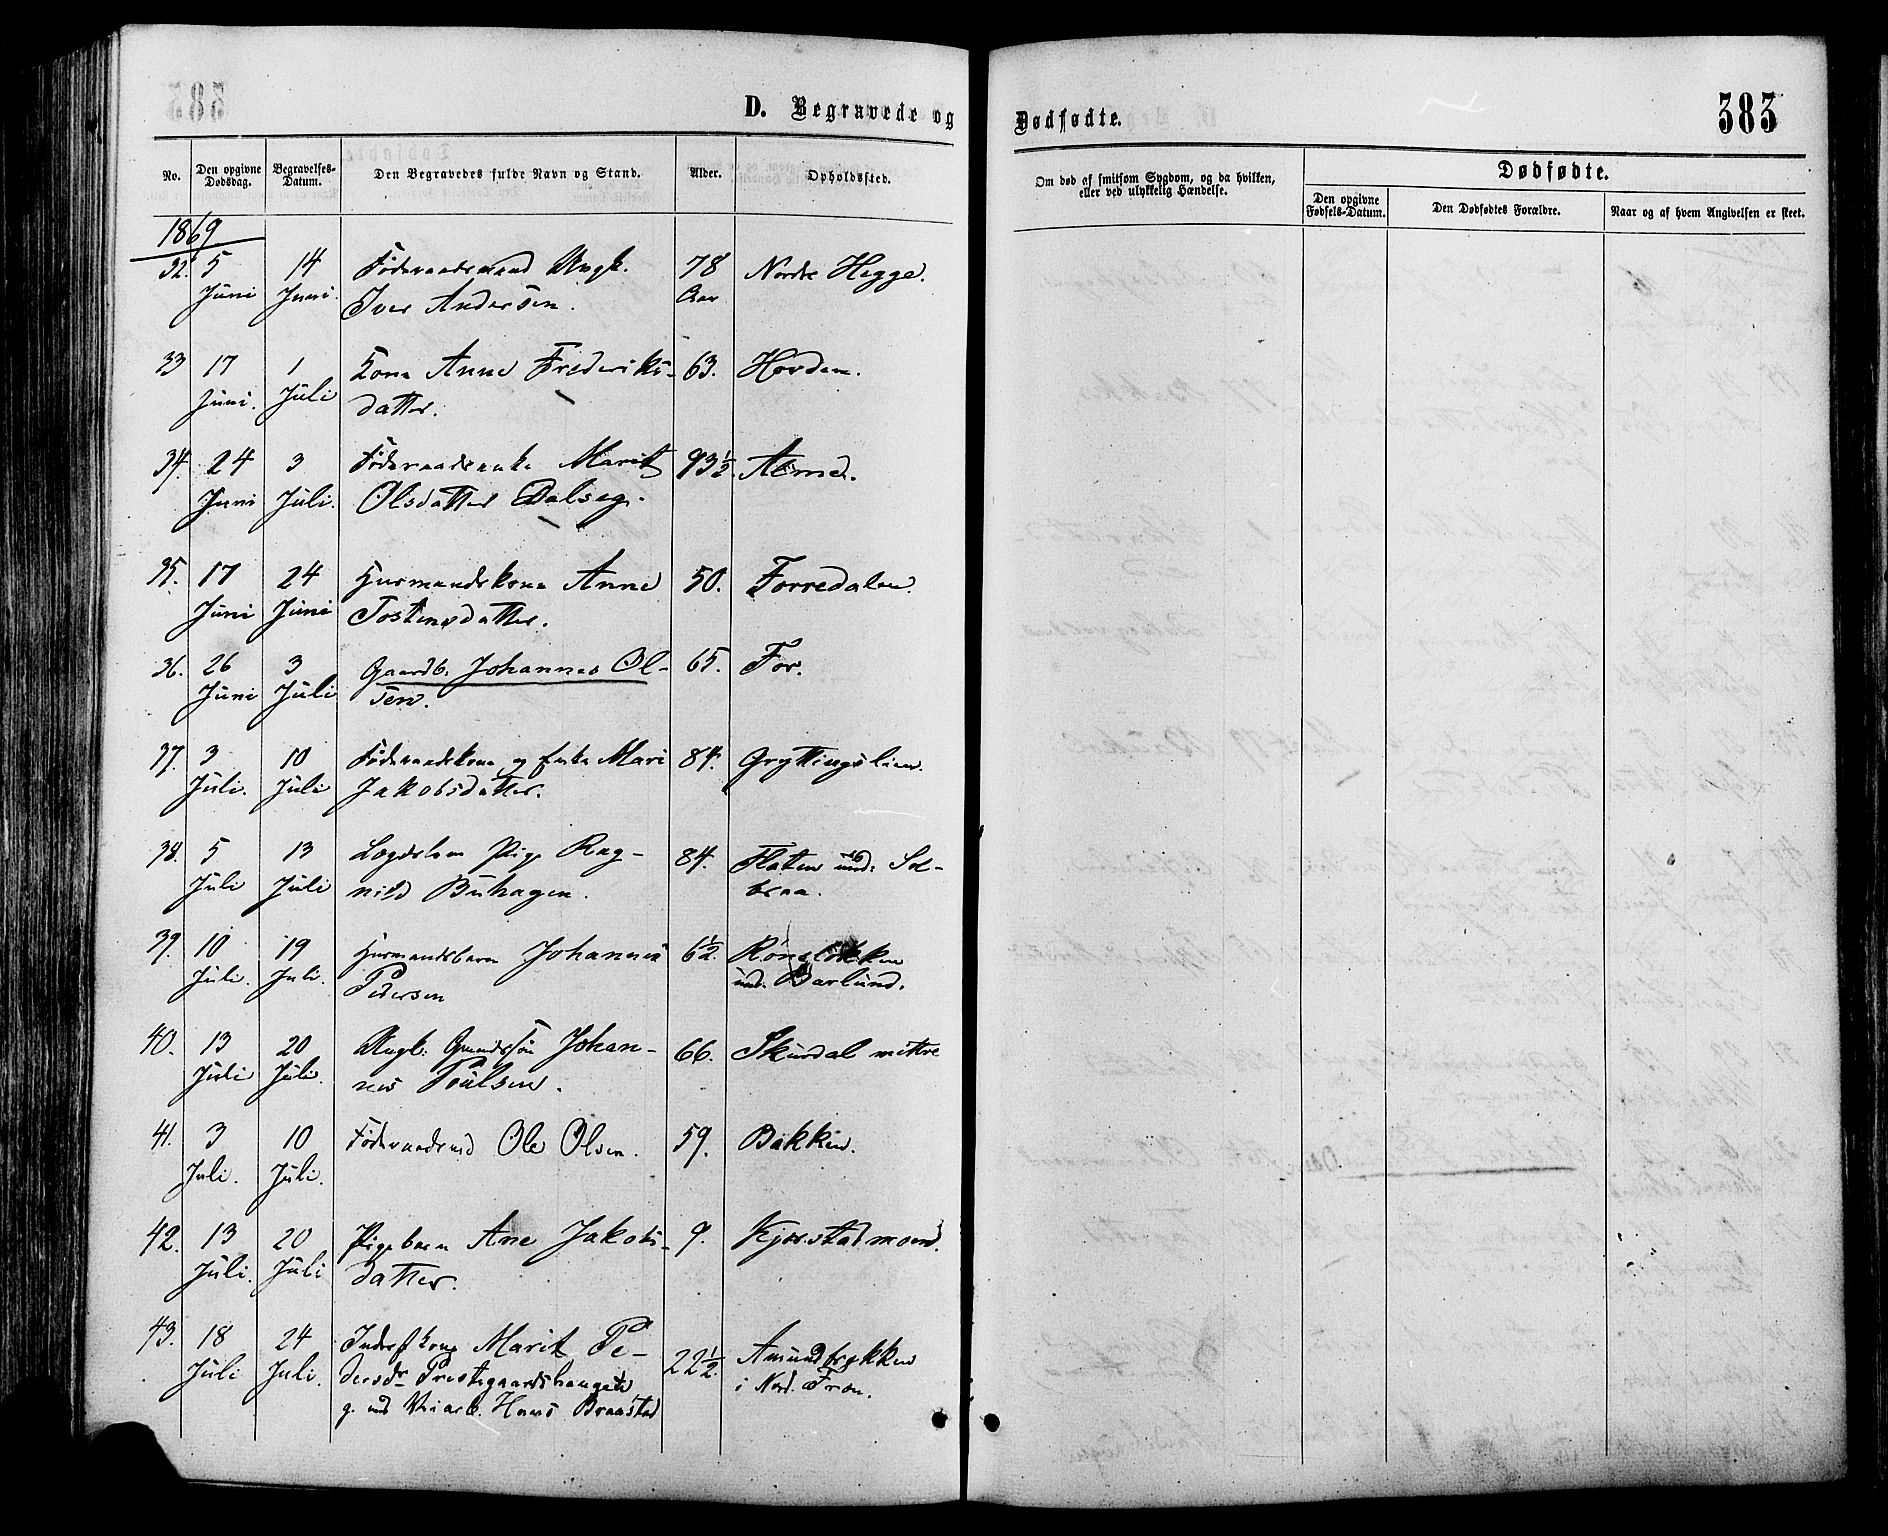 D. Begravede og Dødfødte.
383
No. Den opgivne Dødsdag. Begravelses-Datum. Den Begravedes fulde Navn og Stand. Alder. Opholdssted.
Om død af smitsom Sygdom, og da hvilken, eller ved ulykkelig Hændelse.
Dødfødte.
Den opgivne Fødsels-Datum. Den Dødfødtes Forældre. Naar og af hvem Angivelsen er skeet.
1869
32. 5 14 Føderaadsmand Ungk. 78 Nordre Hegge.
Juni Juni. Iver Andersen. Aar
33 17 1 Kone Anne Frederiks- 63. Hovden.
Juni. Juli datter.
34. 24 3 Føderaadsenke Marit 93½
Juni Juli. Olsdatter Dalseg.
35. 17 24 Husmandskone Anne 50. Forredalen.
Juni Juni Tostensdatter.
36. 26 3 Gaardb. Johannes Ol- 65. For.
Juni Juli sen.
37. 3 10 Føderaadskone og Enke Mari 84. Gryttingslien.
Juli. Juli Jakobsdatter.
38. 5 13 Lægdslem Pige Rag- 84. Flaten und: Sol-
Juli Juli nild Buhagen. braa.
39. 10 19 Husmandsbarn Johannes 6½.
Juli. Juli. Pedersen und. Barlund.
40. 13 20 Ungk: Johan- 66. Skurdal mittre
Juli Juli. nes Poulsen.
41. 3 10 Føderaadsmd Ole Olsen. 59. Bakken.
Juli. Juli.
42. 13 20 Pigebarn Ane Jakobs- 9. Kjørstadmoen.
Juli. Juli datter.
43. 18 24 Inderstkone Marit Pe- 22½.
Juli Juli. dersdr Prestegaardshangen i Nord. Fron.
g. md Hans Braastad